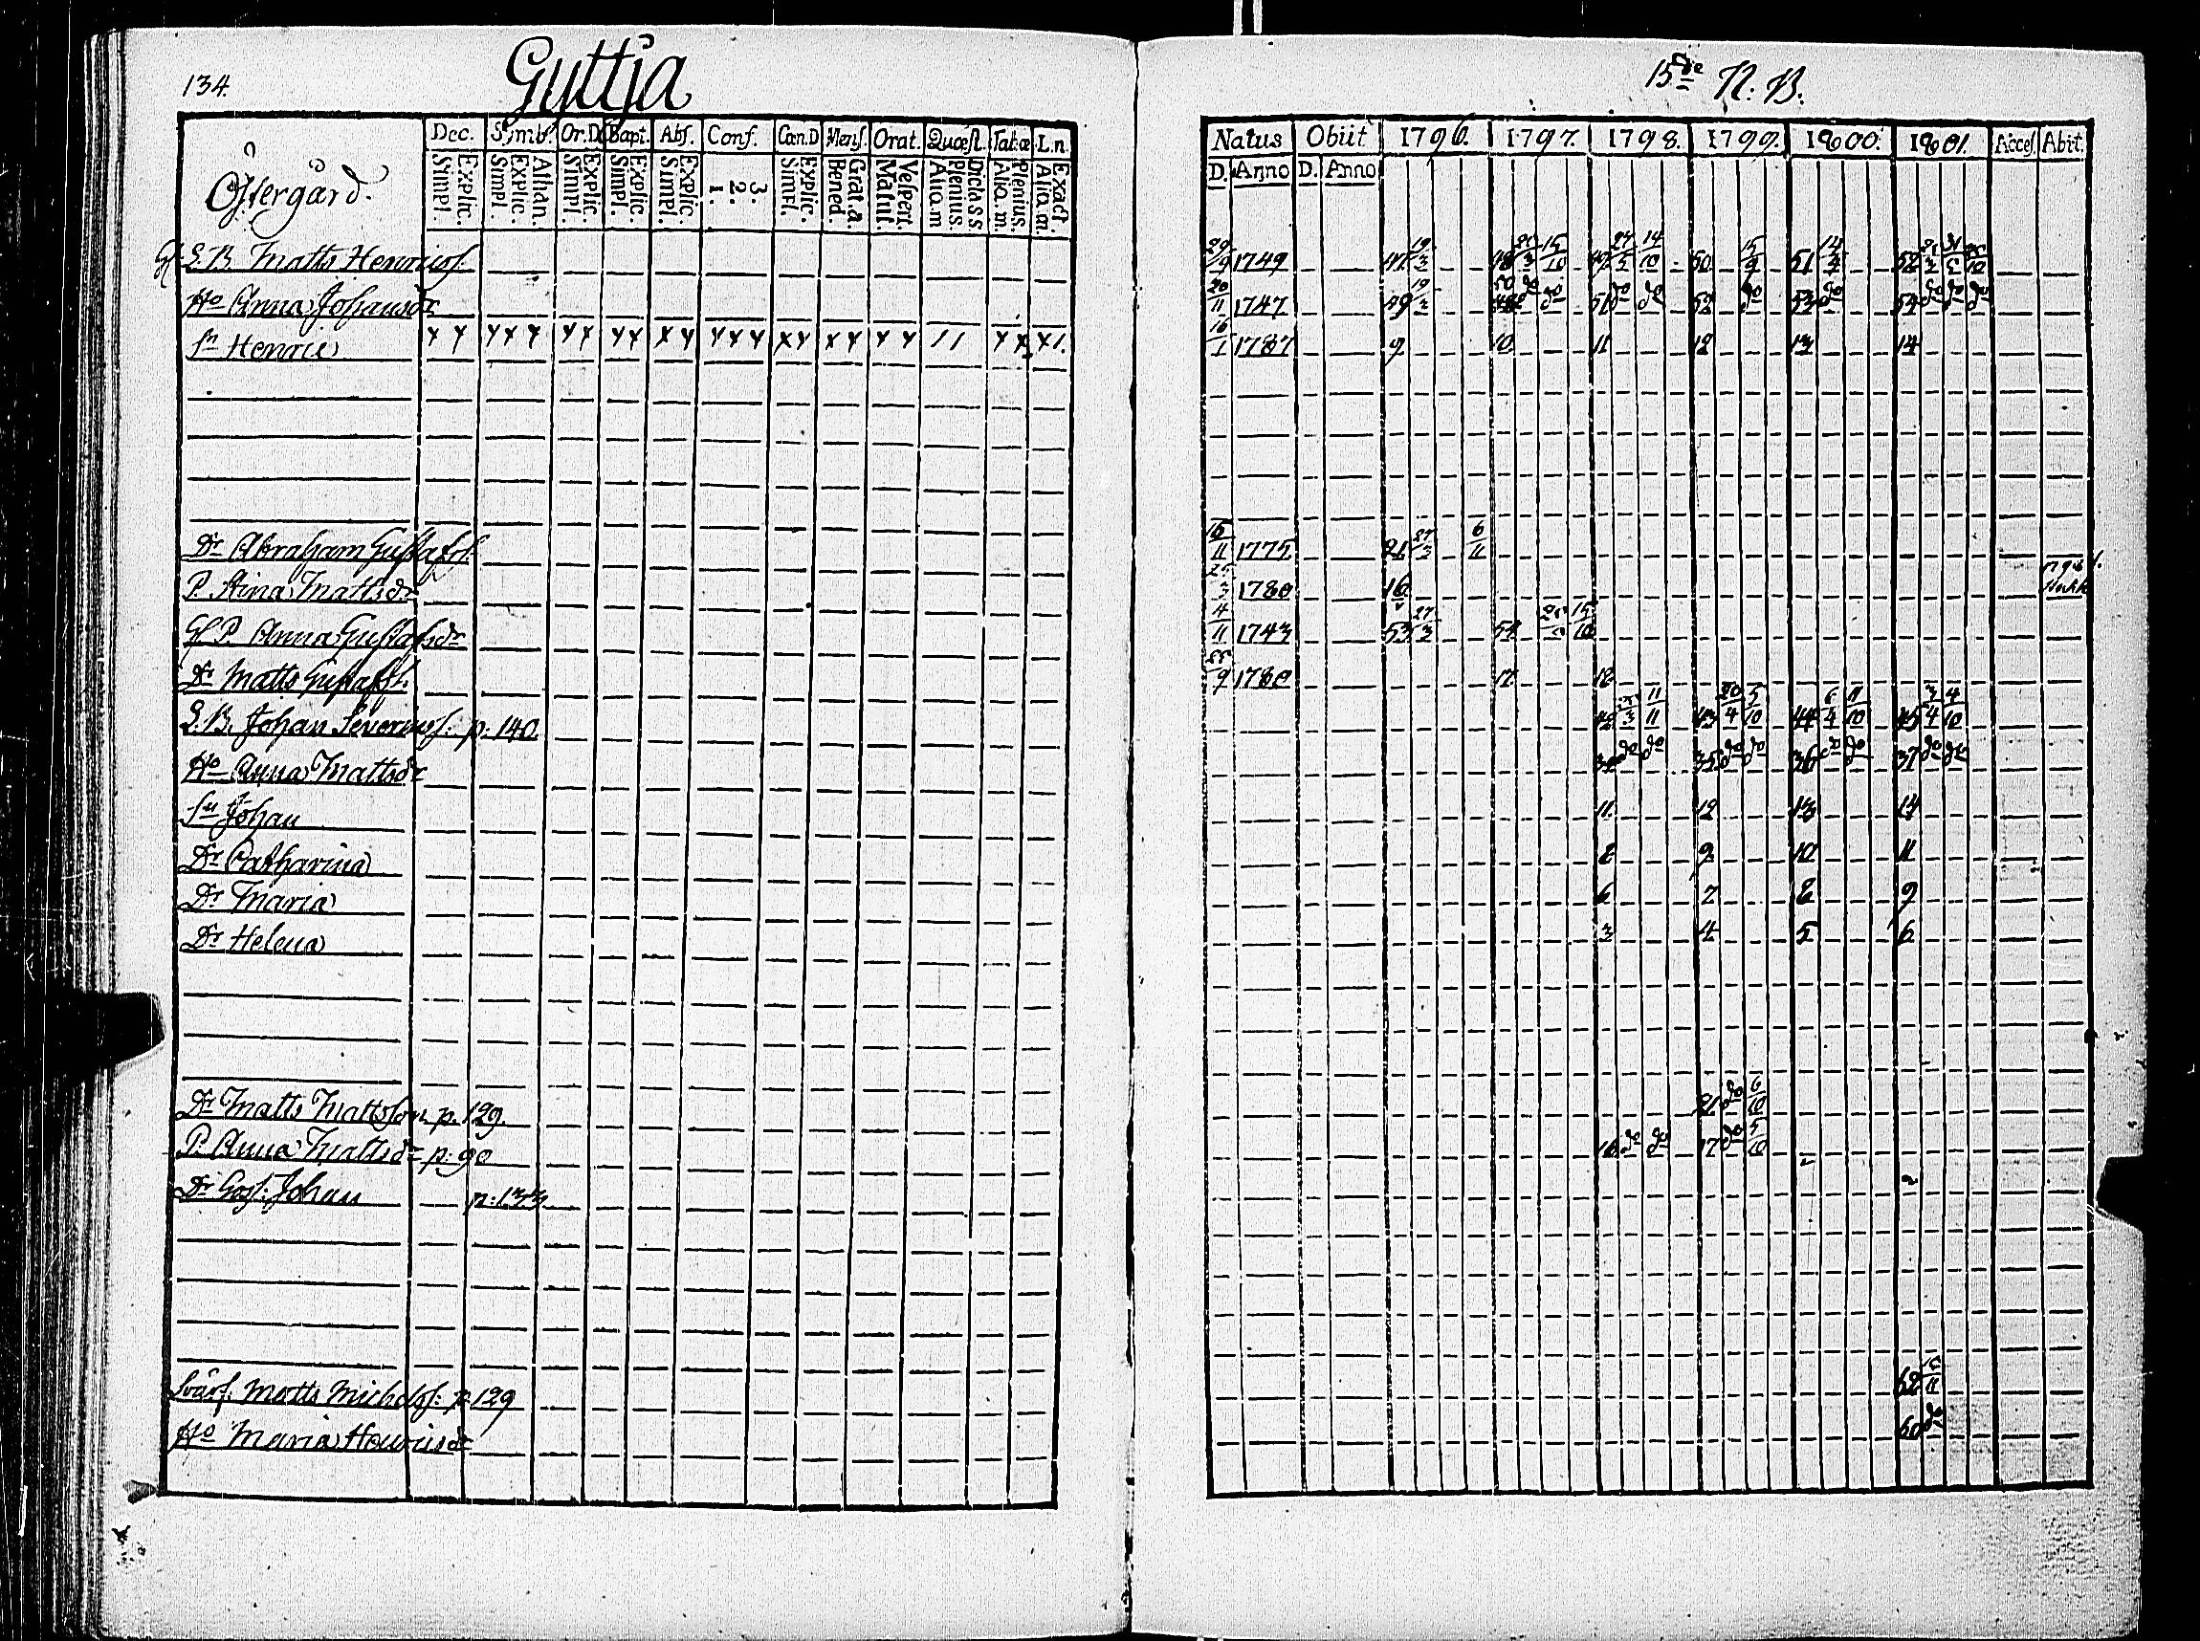 134.
Gyttja
15de N. B.
Östergård.
Dec. Symb. Or.D Bapt. Abs. Conf. Cœn.D Mens. Orat. Quæst. Tab.œ L.n.
Simpl. Explic. Simpl. Explic. Athan. Simpl. Explic. Simpl. Explic. Simpl. Explic. 1. 2. 3. Simpl. Explic. Bened. Grat.a. Matut. Vespert. Aliq.m Plenius. Dict.a S S Aliq.m. Plenius. Aliq.m. Exact
Natus Obiit 1796. 1797. 1798. 1799. 1800. 1801. Acces. Abit.
D. Anno D. Anno
S.B. Matts Henricss. 29/9 1749 19/3 15/10 49 14/10 50 15/9 51 52
Ho Anna Johansdr 20/11 1747 49 19/3 50 do do 51 do do 52 do 53 do 54 do do do
Sn Henric 16/1 1787 9 10 11 12 13 14
Dr Abraham Gustafss. 16/11 1775 21 27/3 6/11
P. Stina Mattsdr 25/3 1780 16
P. Anna Gustafsdr 4/11 1743 53 27/3 54 15/10
Dr Matts Gustafss. 1780 17 18
S.B. Johan Severinss. p. 140. 42 11/11 43 20/4 5/10 44 6/4 11/10 45 3/4 4/10
Ho Anna Mattsdr 34 do do 35 do do 36 do do 37 do do
Sn Johan 11. 12 13 14
Dr Catharina 8 9 10 11
Dr Maria 6 7 8 9
Dr Helena 3 4 5 6
Dr Matts Mattsson p. 129. 21 do 6/10
P. Anna Mattsdr p. 90 16 do do 17 do 5/10
Dr Goss: Johan p. 133.
Svärf. Matts Michelss: p. 129 62
Ho Maria Henricsdr 60 do